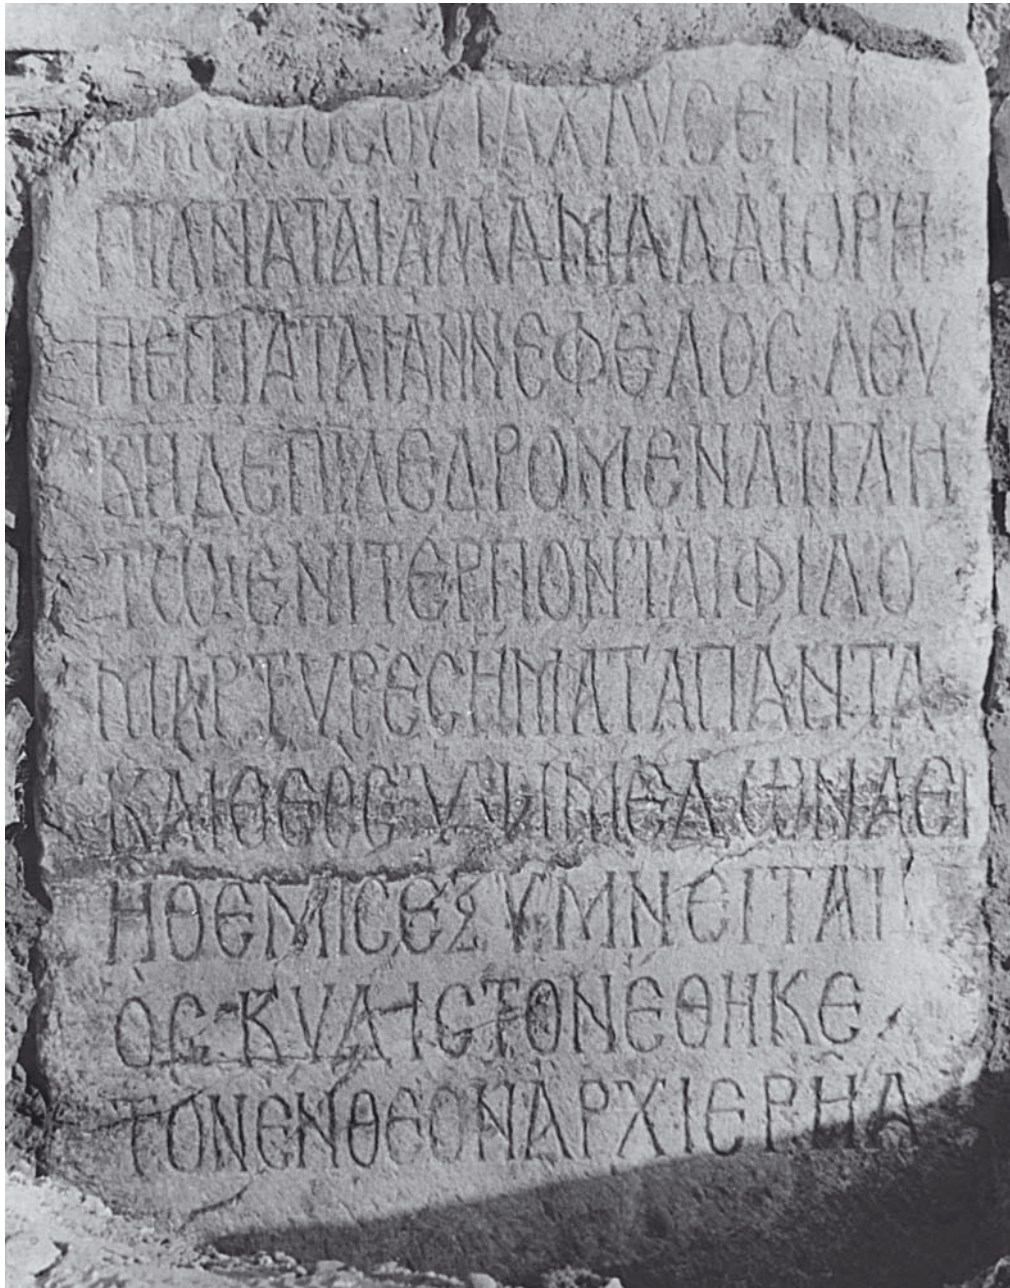 ΟCΟΥΤΑΧΛΥCΕΠΙ
ΠΙΛΝΑΤΑΙΑΛΛΑΜΑΛΑΙΘΡΗ
ΠΕΠΤΑΤΑΙΑΝΝΕΦΕΛΟCΛΕΥ
ΚΗΔΕΠΙΔΕΔΡΟΜΕΝΑΙΓΛΗ
ΤΩΕΝΙΤΕΡΠΟΝΤΑΙΦΙΛΟ
ΜΑΡΤΥΡΕCΗΜΑΤΑΠΑΝΤΑ
ΚΑΙΘΕΟCΥΨΙΜΕΔΩΝΑΕΙ
ΗΘΕΜΙCΕΣΥΜΝΕΙΤΑΙ
ΟCΚΥΔΙCΤΟΝΕΘΗΚΕ
ΤΟΝΕΝΘΕΟΝΑΡΧΙΕΡΗΑ